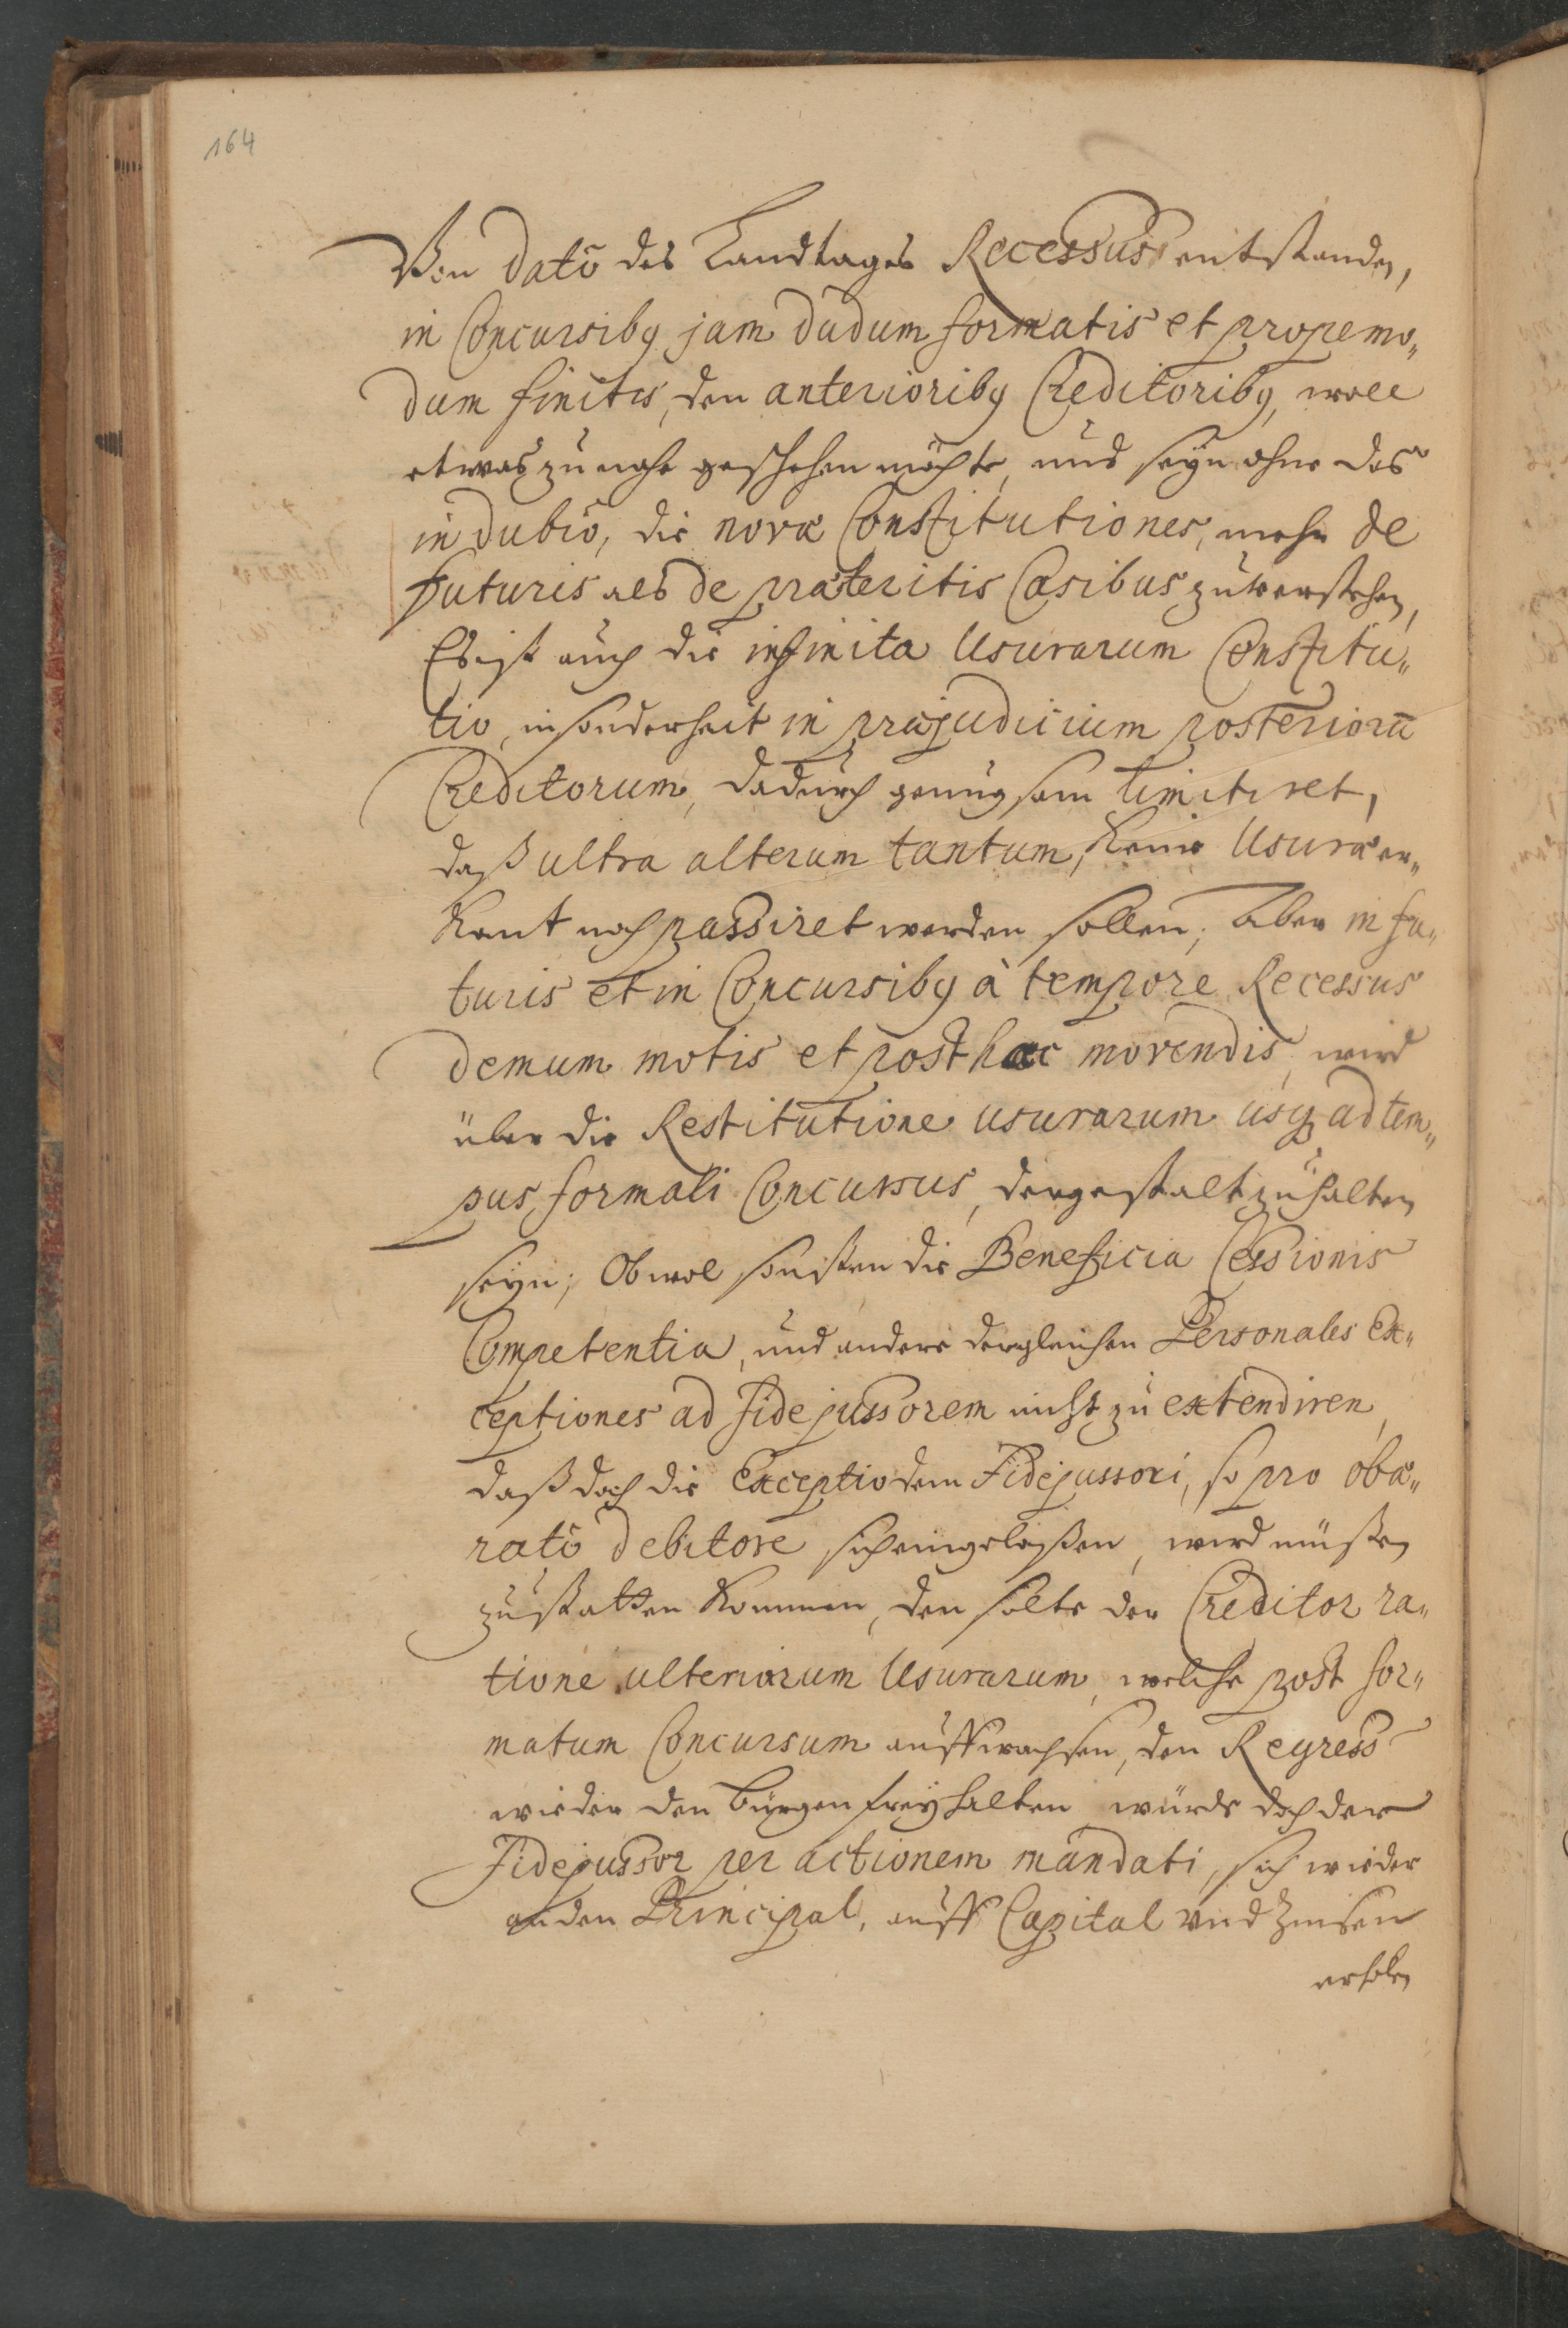 164
Von dato des Landtages Recessus entstanden,
in Concursibꝰ jam dudum formatis et propemo„
dum finitis, den anterioribꝰ Creditoribꝰ, woll
etwas zu nahe geschehen möchte, und seyn ohne das
in dubio, die novæ Constitutiones, mehr de
futuris als de præteritis Casibus zuverstehen,
Es ist auch die infinita Usurarum Constitu„
tio, insonderheit in præjudicium posteriorū
Creditorum, dadurch genugsam limitiret,
daß ultra alterum tantum, keine Usuræ er„
kant noch passiret werden sollen; Aber in fu„
turis et in Concursibꝰ à tempore Recessus
demum motis et posthæc movendis, wird
über die Restitutione usurarum usqꝫ ad tem„
pus formati Concursus, dergestalt zuhalten
seyn; Obwol sonsten die Beneficia Cessionis
Competentia, und andere dergleichen Personales Ex„
ceptiones ad fidejussorem nicht zu extendiren,
daß doch die Exceptio dem Fidejussori, so pro obæ„
rato debitore sich eingelaßen, wird müßen
zustatten kommen, den solte der Creditor ra„
tione ulteriorum Usurarum, welche post for„
matum Concursum auffwachsen, den Regress
wieder den bürgen frey halten würde doch der
Fidejussor per actionem mandati, sich wieder
an den Principal, auff Capital und Zinsen
erholen